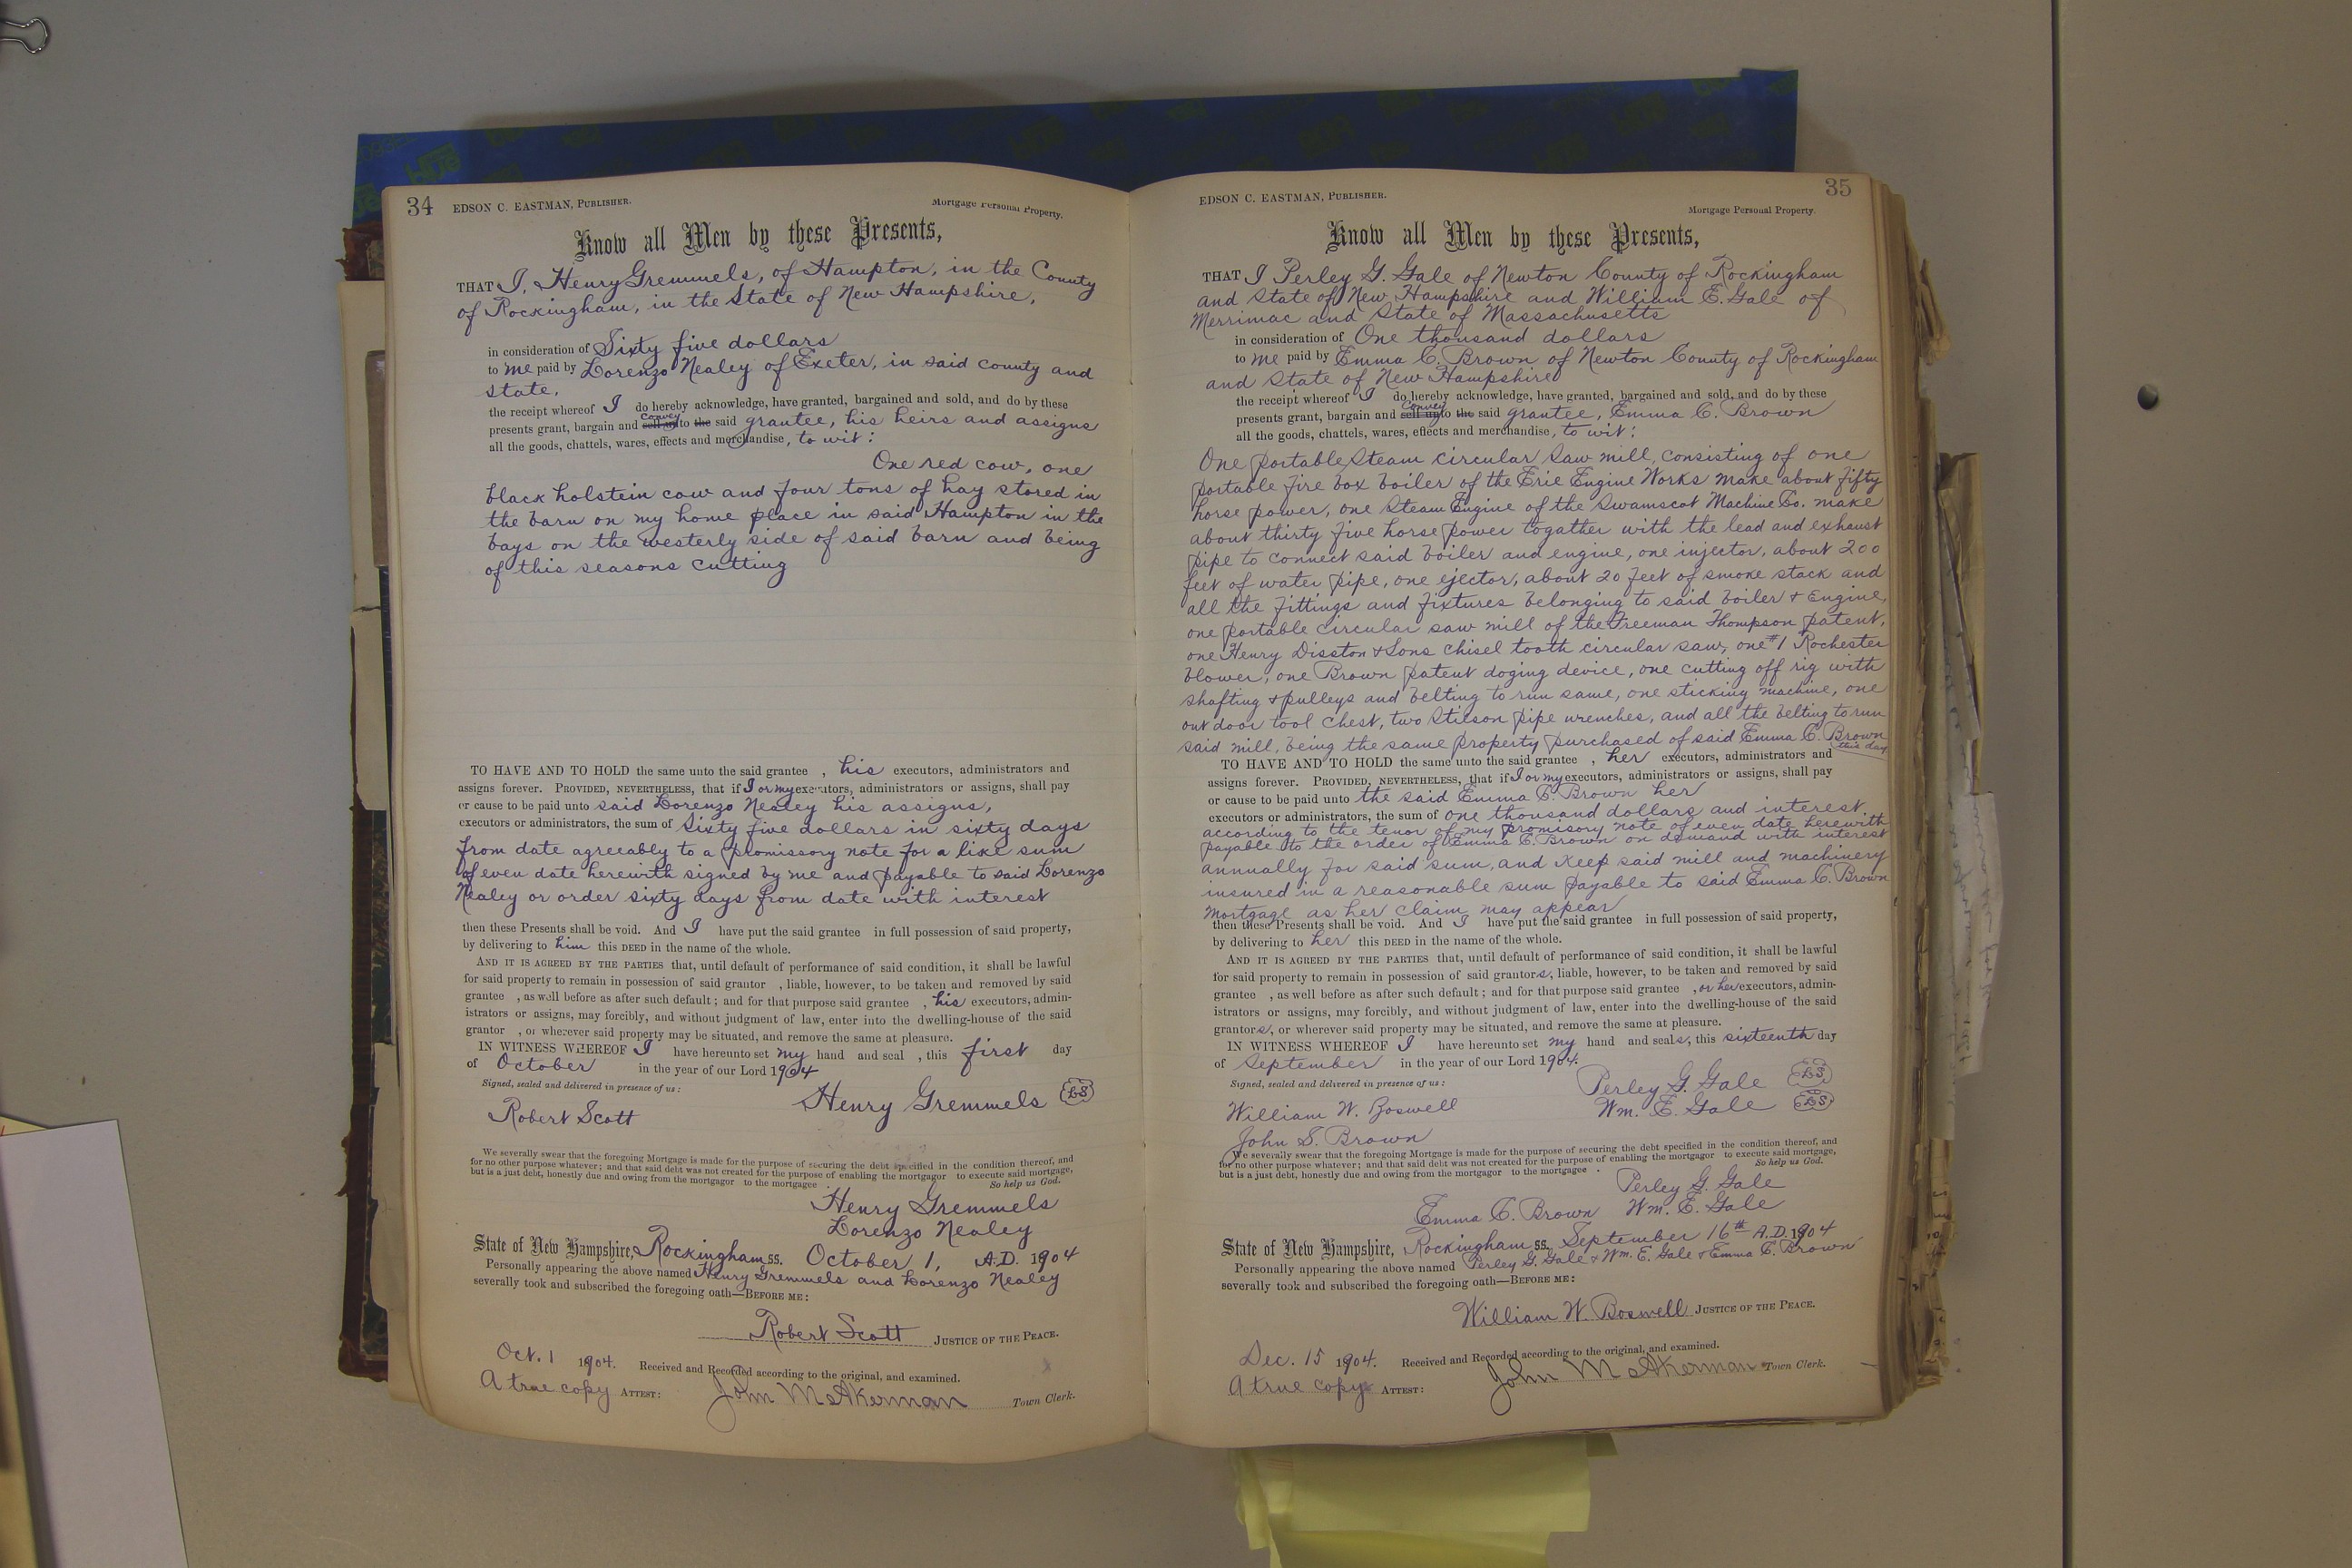 34 EDSON C. EASTMAN, PUBLISHER. Mortgage Personal Property.
Know all Men by these Presents,
THAT I, Henry Gremmels, of Hampton, in the County
of Rockingham, in the State of New Hampshire,
in consideration of Sixty five dollars
to me paid by Lorenzo Nealey of Exeter, in said county and
State,
the receipt whereof I do hereby acknowledge, have granted, bargained and sold, and do by these
convey
presents grant, bargain and sell unto the said grantee, his heirs and assigns
all the goods, chattels, wares, effects and merchandise, to wit:
One red cow, one
black holstein cow and four tons of hay stored in
the barn on my home place in said Hampton in the
bays on the westerly side of said barn and being
of this seasons cutting
TO HAVE AND TO HOLD the same unto the said grantee , his executors, administrators and
assigns forever. PROVIDED, NEVERTHELESS, that if I or my executors, administrators or assigns, shall pay
or cause to be paid unto said Lorenzo Nealey his assigns,
executors or administrators, the sum of Sixty five dollars in sixty days
from date agreeably to a promissory note for a like sum
of even date herewith signed by me and payable to said Lorenzo
Nealey or order sixty days from date with interest
then these Presents shall be void. And I have put the said grantee in full possession of said property,
by delivering to him this DEED in the name of the whole.
AND IT IS AGREED BY THE PARTIES that, until default of performance of said condition, it shall be lawful
for said property to remain in possession of said grantor , liable, however, to be taken and removed by said
grantee , as well before as after such default; and for that purpose said grantee , his executors, admin-
istrators or assigns, may forcibly, and without judgment of law, enter into the dwelling-house of the said
grantor , or wherever said property may be situated, and remove the same at pleasure.
IN WITNESS WHEREOF I have hereunto set my hand and seal , this first day
of October in the year of our Lord 1904
Signed, sealed and delivered in presence of us:
Henry Gremmels LS
Robert Scott
We severally swear that the foregoing Mortgage is made for the purpose of securing the debt specified in the condition thereof, and
for no other purpose whatever; and that said debt was not created for the purpose of enabling the mortgagor to execute said mortgage,
but is a just debt, honestly due and owing from the mortgagor to the mortgagee . So help us God.
Henry Gremmels
Lorenzo Nealey
State of New Hampshire, Rockingham SS. October 1, A.D. 1904
Personally appearing the above named Henry Gremmels and Lorenzo Nealey
severally took and subscribed the foregoing oath—BEFORE ME:
Robert Scott JUSTICE OF THE PEACE.
Oct. 1 1904. Received and Recorded according to the original, and examined.
A true copy ATTEST: John M Akerman Town Clerk.
EDSON C. EASTMAN, PUBLISHER. 35
Mortgage Personal Property.
Know all Men by these Presents,
THAT I Perley G. Gale of Newton County of Rockingham
and State of New Hampshire and William E. Gale of
Merrimac and State of Massachusetts
in consideration of One thousand dollars
to me paid by Emma C. Brown of Newton County of Rockingham
and State of New Hampshire
the receipt whereof I do hereby acknowledge, have granted, bargained and sold, and do by these
convey
presents grant, bargain and sell unto the said grantee, Emma C. Brown
all the goods, chattels, wares, effects and merchandise, to wit:
One portable Steam circular Saw mill, consisting of one
portable fire box boiler of the Erie Engine Works make about fifty
horse power, one Steam Engine of the Swamscot Machine Co. make
about thirty five horse power togather with the lead and exhaust
pipe to connect said boiler and engine, one injector, about 200
feet of water pipe, one ejector, about 20 feet of smoke stack and
all the fittings and fixtures belonging to said boiler & Engine,
one portable circular saw mill of the Freeman Thompson patent,
one Henry Disston & Sons chisel tooth circular saw, one #1 Rochester
blower, one Brown patent doging device, one cutting off rig with
shafting & pulleys and belting to run same, one sticking machine, one
out door tool chest, two Stilson pipe wrenches, and all the belting to run
said mill, being the same property purchased of said Emma C. Brown
this day
TO HAVE AND TO HOLD the same unto the said grantee , her executors, administrators and
assigns forever. PROVIDED, NEVERTHELESS, that if I or my executors, administrators or assigns, shall pay
or cause to be paid unto the said Emma C. Brown her
executors or administrators, the sum of one thousand dollars and interest
according to the tenor of my promisory note of even date herewith
payable to the order of Emma C. Brown on demand with interest
annually for said sum, and keep said mill and machinery
insured in a reasonable sum payable to said Emma C. Brown
mortgage as her claim may appear
then these Presents shall be void. And I have put the said grantee in full possession of said property,
by delivering to her this DEED in the name of the whole.
AND IT IS AGREED BY THE PARTIES that, until default of performance of said condition, it shall be lawful
for said property to remain in possession of said grantors, liable, however, to be taken and removed by said
grantee , as well before as after such default; and for that purpose said grantee , or her executors, admin-
istrators or assigns, may forcibly, and without judgment of law, enter into the dwelling-house of the said
grantors, or wherever said property may be situated, and remove the same at pleasure.
IN WITNESS WHEREOF I have hereunto set my hand and seals, this sixteenth day
of September in the year of our Lord 1904.
Signed, sealed and delivered in presence of us:
Perley G. Gale LS
William W. Boswell Wm. E. Gale LS
John S. Brown
We severally swear that the foregoing Mortgage is made for the purpose of securing the debt specified in the condition thereof, and
for no other purpose whatever; and that said debt was not created for the purpose of enabling the mortgagor to execute said mortgage,
but is a just debt, honestly due and owing from the mortgagor to the mortgagee . So help us God.
Perley G. Gale
Emma C. Brown Wm. E. Gale
State of New Hampshire, Rockingham SS. September 16th A.D. 1904
Personally appearing the above named Perley G. Gale & Wm. E. Gale & Emma C. Brown
severally took and subscribed the foregoing oath—BEFORE ME:
William W. Boswell JUSTICE OF THE PEACE.
Dec. 15 1904. Received and Recorded according to the original, and examined.
A true copy ATTEST: John M Akerman Town Clerk.